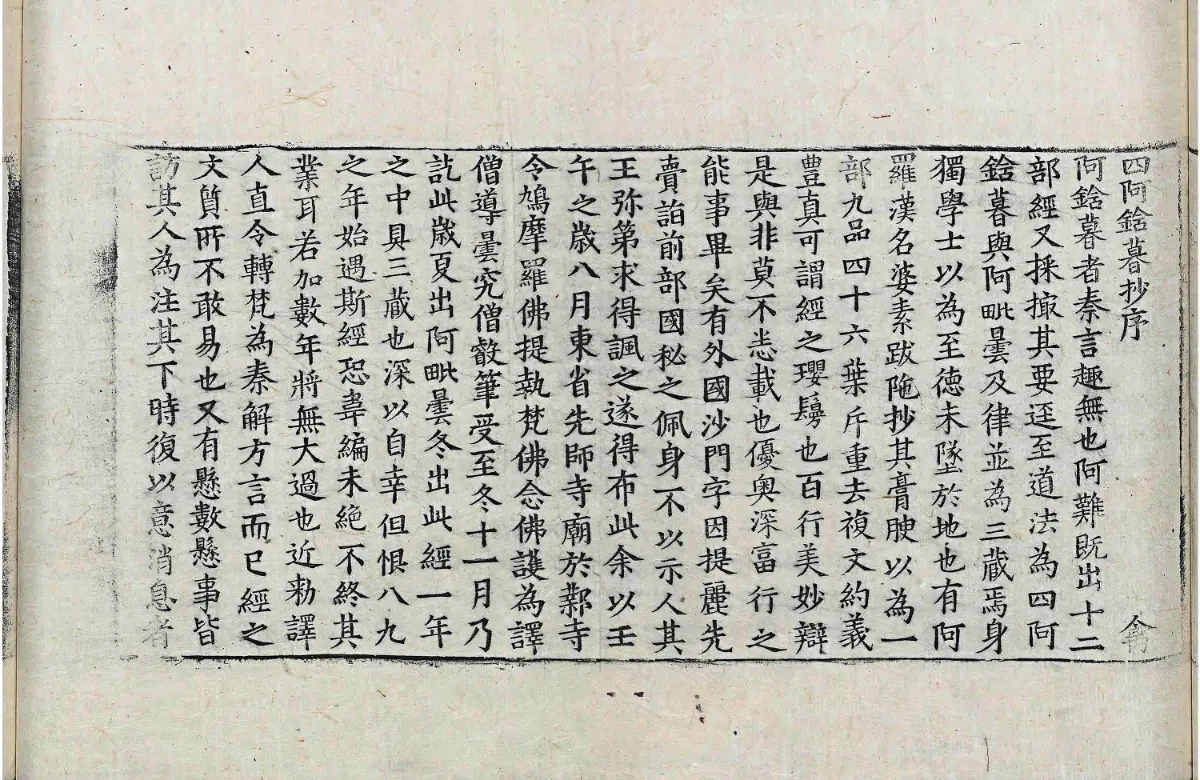 四阿鋡暮抄序 禽
阿鋡暮者秦言趣無也阿難既出十二
部經又採撮其要逕至道法為四阿
鋡暮與阿毗曇及律並為三藏焉身
獨學士以為至德未墜於地也有阿
羅漢名婆素跋陁抄其膏腴以為一
部九品四十六葉斥重去複文約義
豊真可謂經之瓔鬘也百行美妙辯
是與非莫不悉載也優奧深富行之
能事畢矣有外國沙門字因提麗先
賣詣前部國秘之佩身不以示人其
王弥第求得諷之遂得布此余以壬
午之歲八月東省先師寺廟於鄴寺
令鳩摩羅佛提執梵佛念佛護為譯
僧導曇究僧叡筆受至冬十一月乃
訖此歲夏出阿毗曇冬出此經一年
之中具三藏也深以自幸但惧八九
之年始遇斯經恐韋編未絕不終其
業耳若加數年將無大過也近勑譯
人直令轉梵為秦解方言而已經之
文質所不敢易也又有懸數懸事皆
訪其人為注其下時復以意消息者